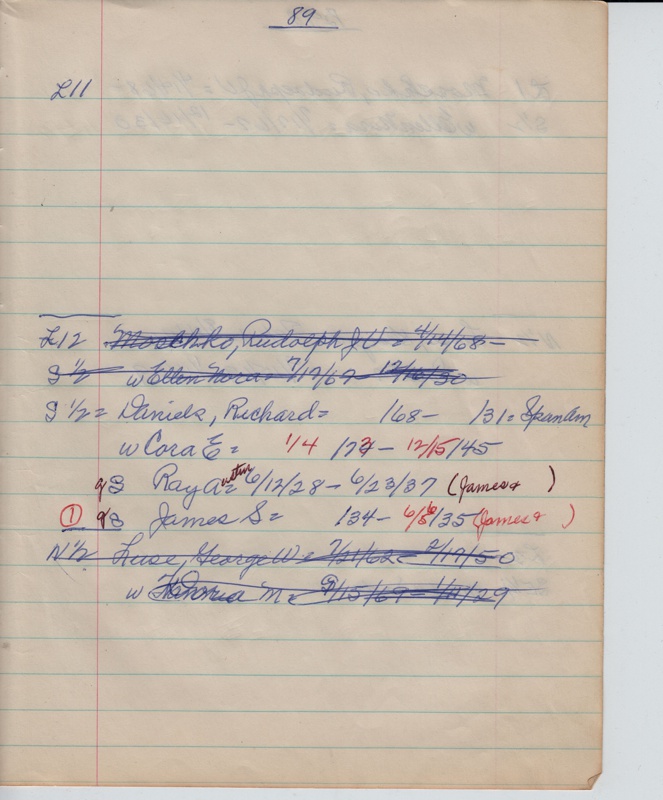 89
L11
L12 Moechko, Rudolph J W = 4/14/68 -
S 1/2 w Ellen Nora = 7/17/67 - 12/16/30
S 1/2 = Daniels, Richard = /68 - /31 = SpanAm
w Cora E = 1/4 /73 - 12/15/45
gs Ray A = 6/12/28 - 6/23/37 (James & )
① gs James S = /34 - /35 (James & )
N 1/2 Luse, George W = 7/21/62 - 2/17/50
w M = 9/15/69 - /29